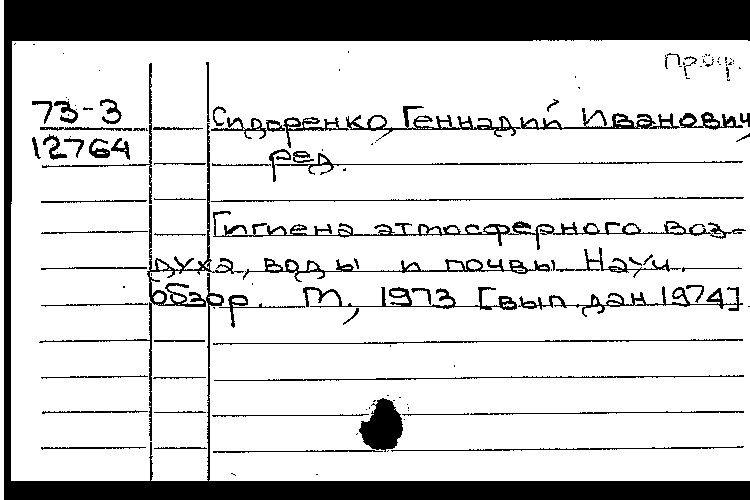 проф.
73-3 Сидоренко, Геннадий Иванович,
12764 ред.
Гигиена атмосферного воз-
духа, воды и почвы. Науч.
обзор. М., 1973 [вып. дан. 1974]